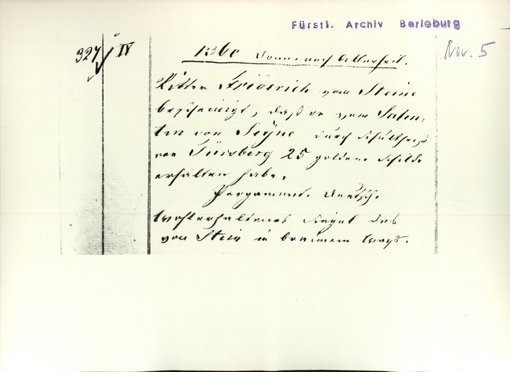 Fürstl. Archiv Berleburg
Nov. 5
327 IV
1360 Donn. nach Allerheil.
Ritter Friderich vom Steine
bescheinigt, daß er vom Salen-
tin von Seyne durch Schultheiß
von 25 goldene Schilde
erhalten habe.
Pergament. Deutsch.
Wohlerhaltenes Siegel des
von Stein in braunem Wachs.